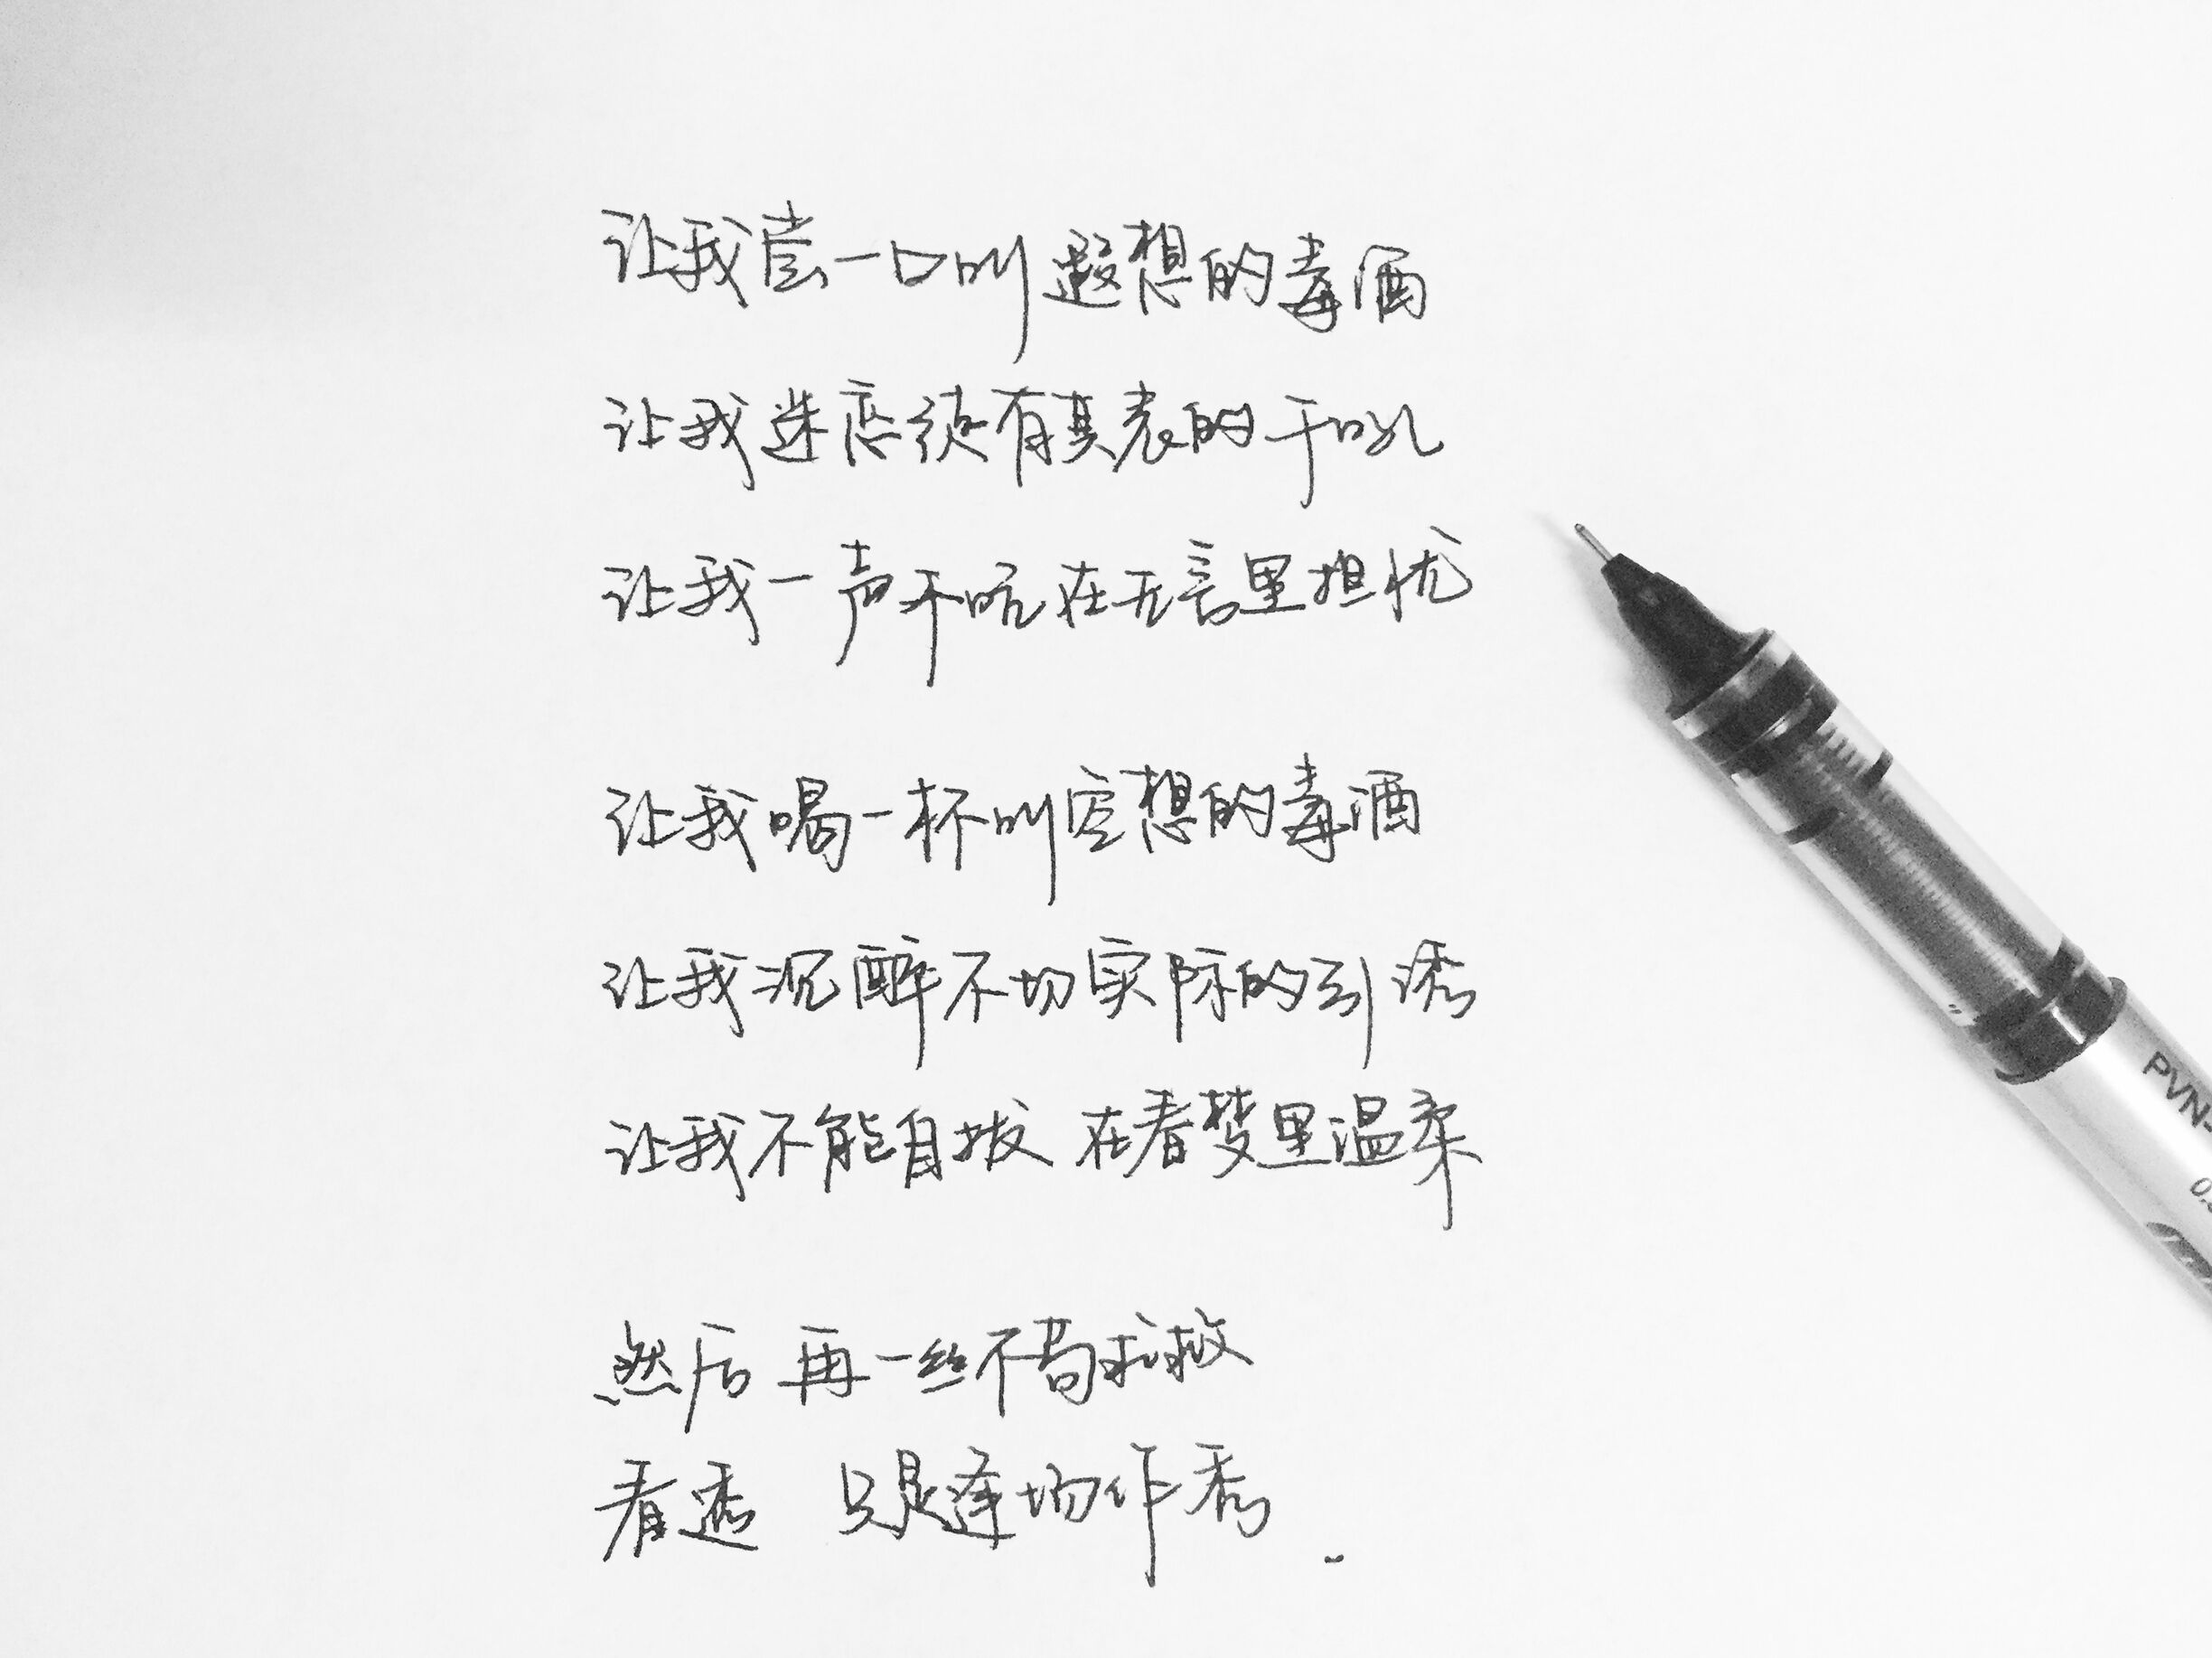 让我尝一口叫遐想的毒酒
让我迷恋徒有其表的干吼
让我一声不吭在无言里担忧
让我喝一杯叫空想的毒酒
让我沉醉不切实际的引诱
让我不能自拔 在春梦里温柔
然后 再一丝不苟求救
看透 只是逢场作秀.
PVN-